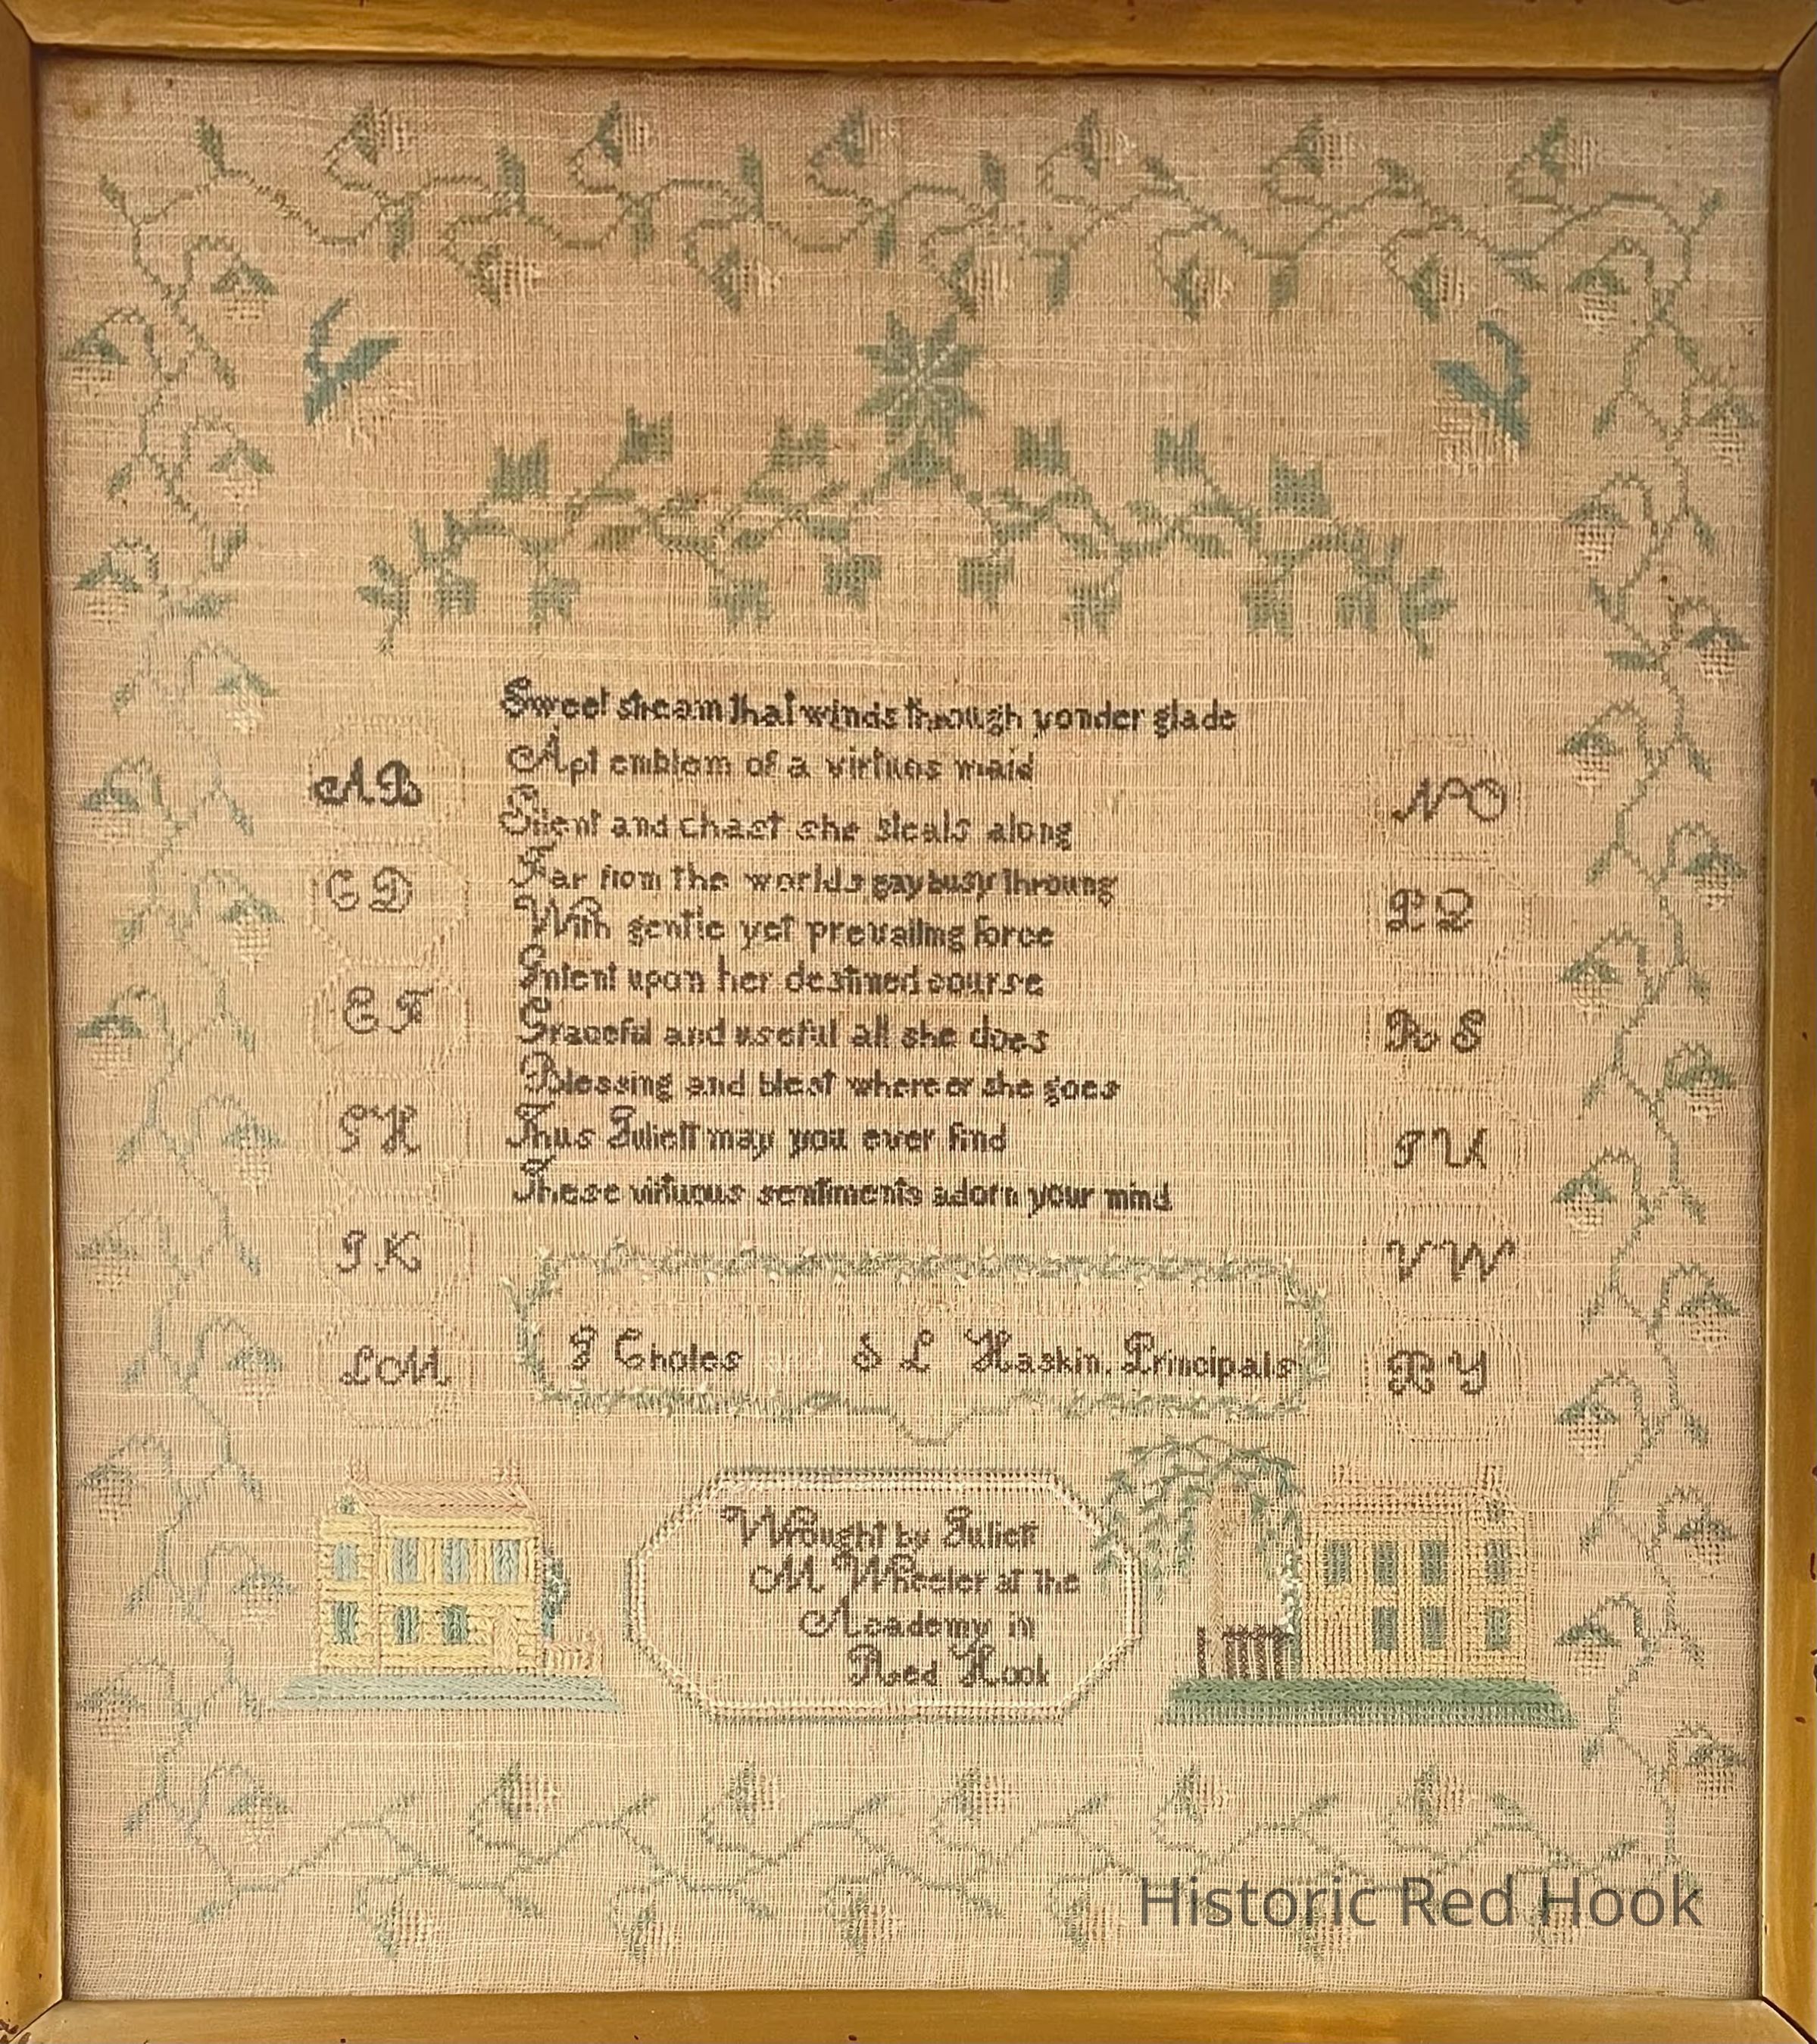 Sweet stream that winds through yonder glade
Apt emblem of a virtuos maid
Silent and chast she steals along
Far from the worlds gay busy throung
With gentle yet prevailing force
Intent upon her destined course
Graceful and useful all she does
Blessing and blest where er she goes
Thus Juliett may you ever find
These virtuous sentiments adorn your mind
A B
C D
E F
G H
I K
L M
N O
P Q
R S
T U
V W
X Y
J Choles and S L Haskin. Principals
Wrought by Juliett
M Wheeler at the
Academy in
Red Hook
Historic Red Hook